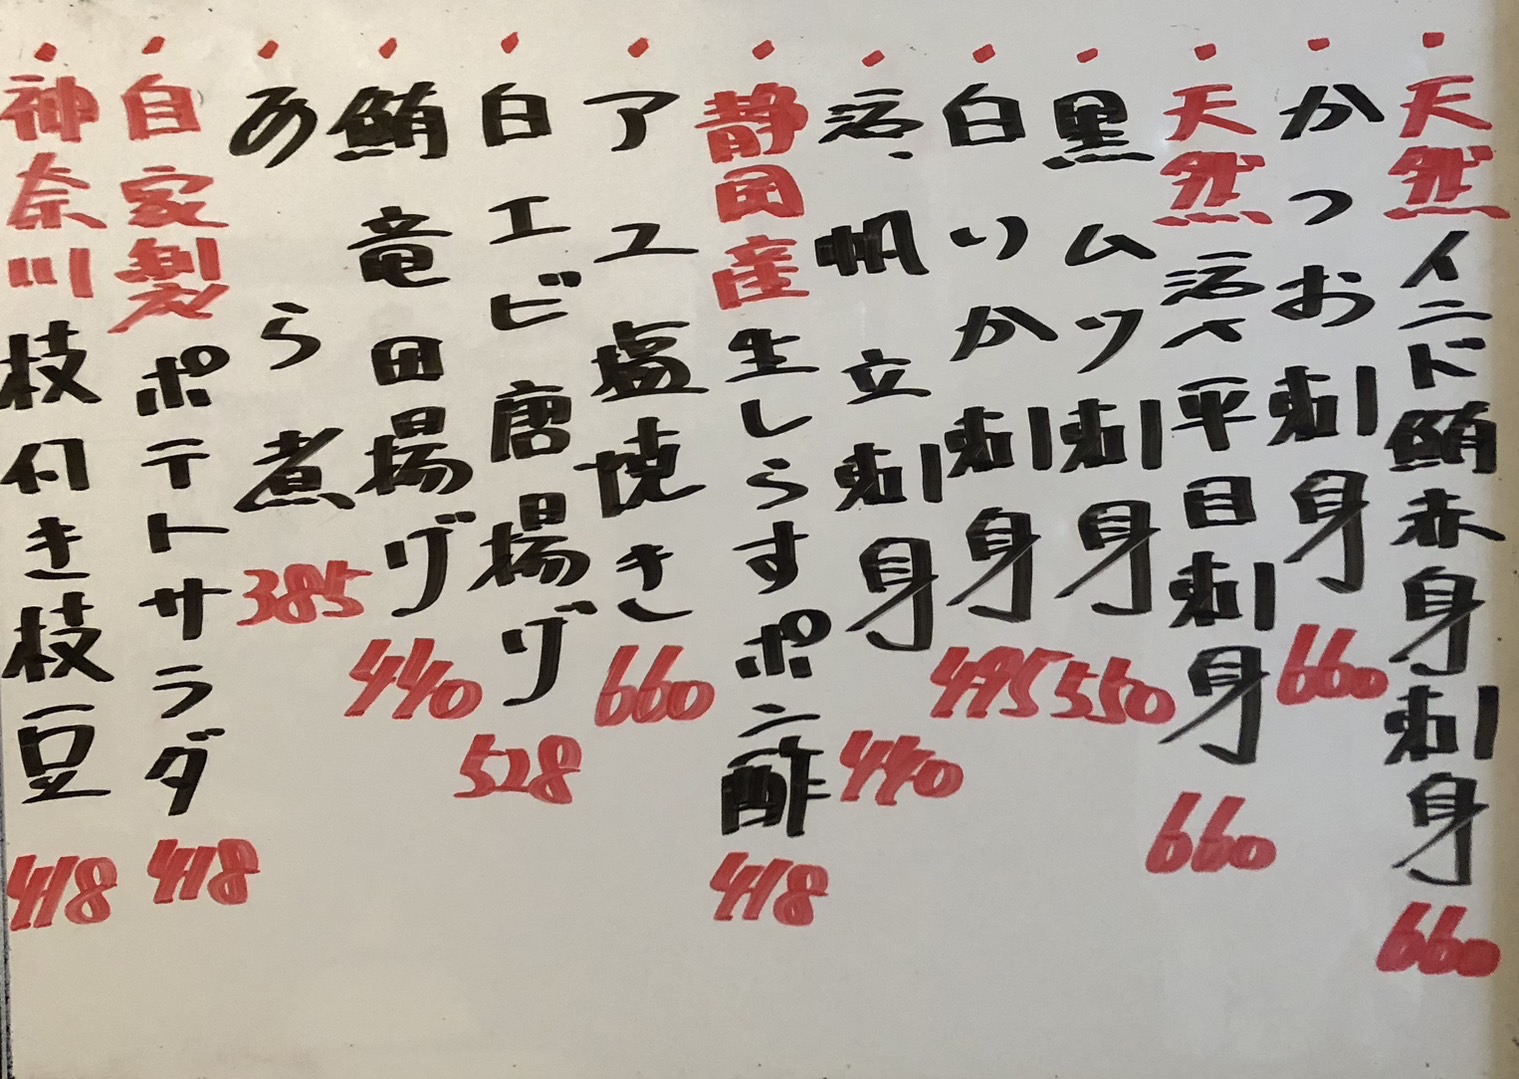 ・天然インド鮪赤身刺身 660
・かつお刺身 660
・天然活〆平目刺身 660
・黒ムツ刺身 550
・白いか刺身 495
・活帆立刺身 440
・静岡産生しらすポン酢 418
・アユ塩焼き 660
・白エビ唐揚げ 528
・鮪竜田揚げ 440
・あら煮 385
・自家製ポテトサラダ 418
・神奈川枝付き枝豆 418